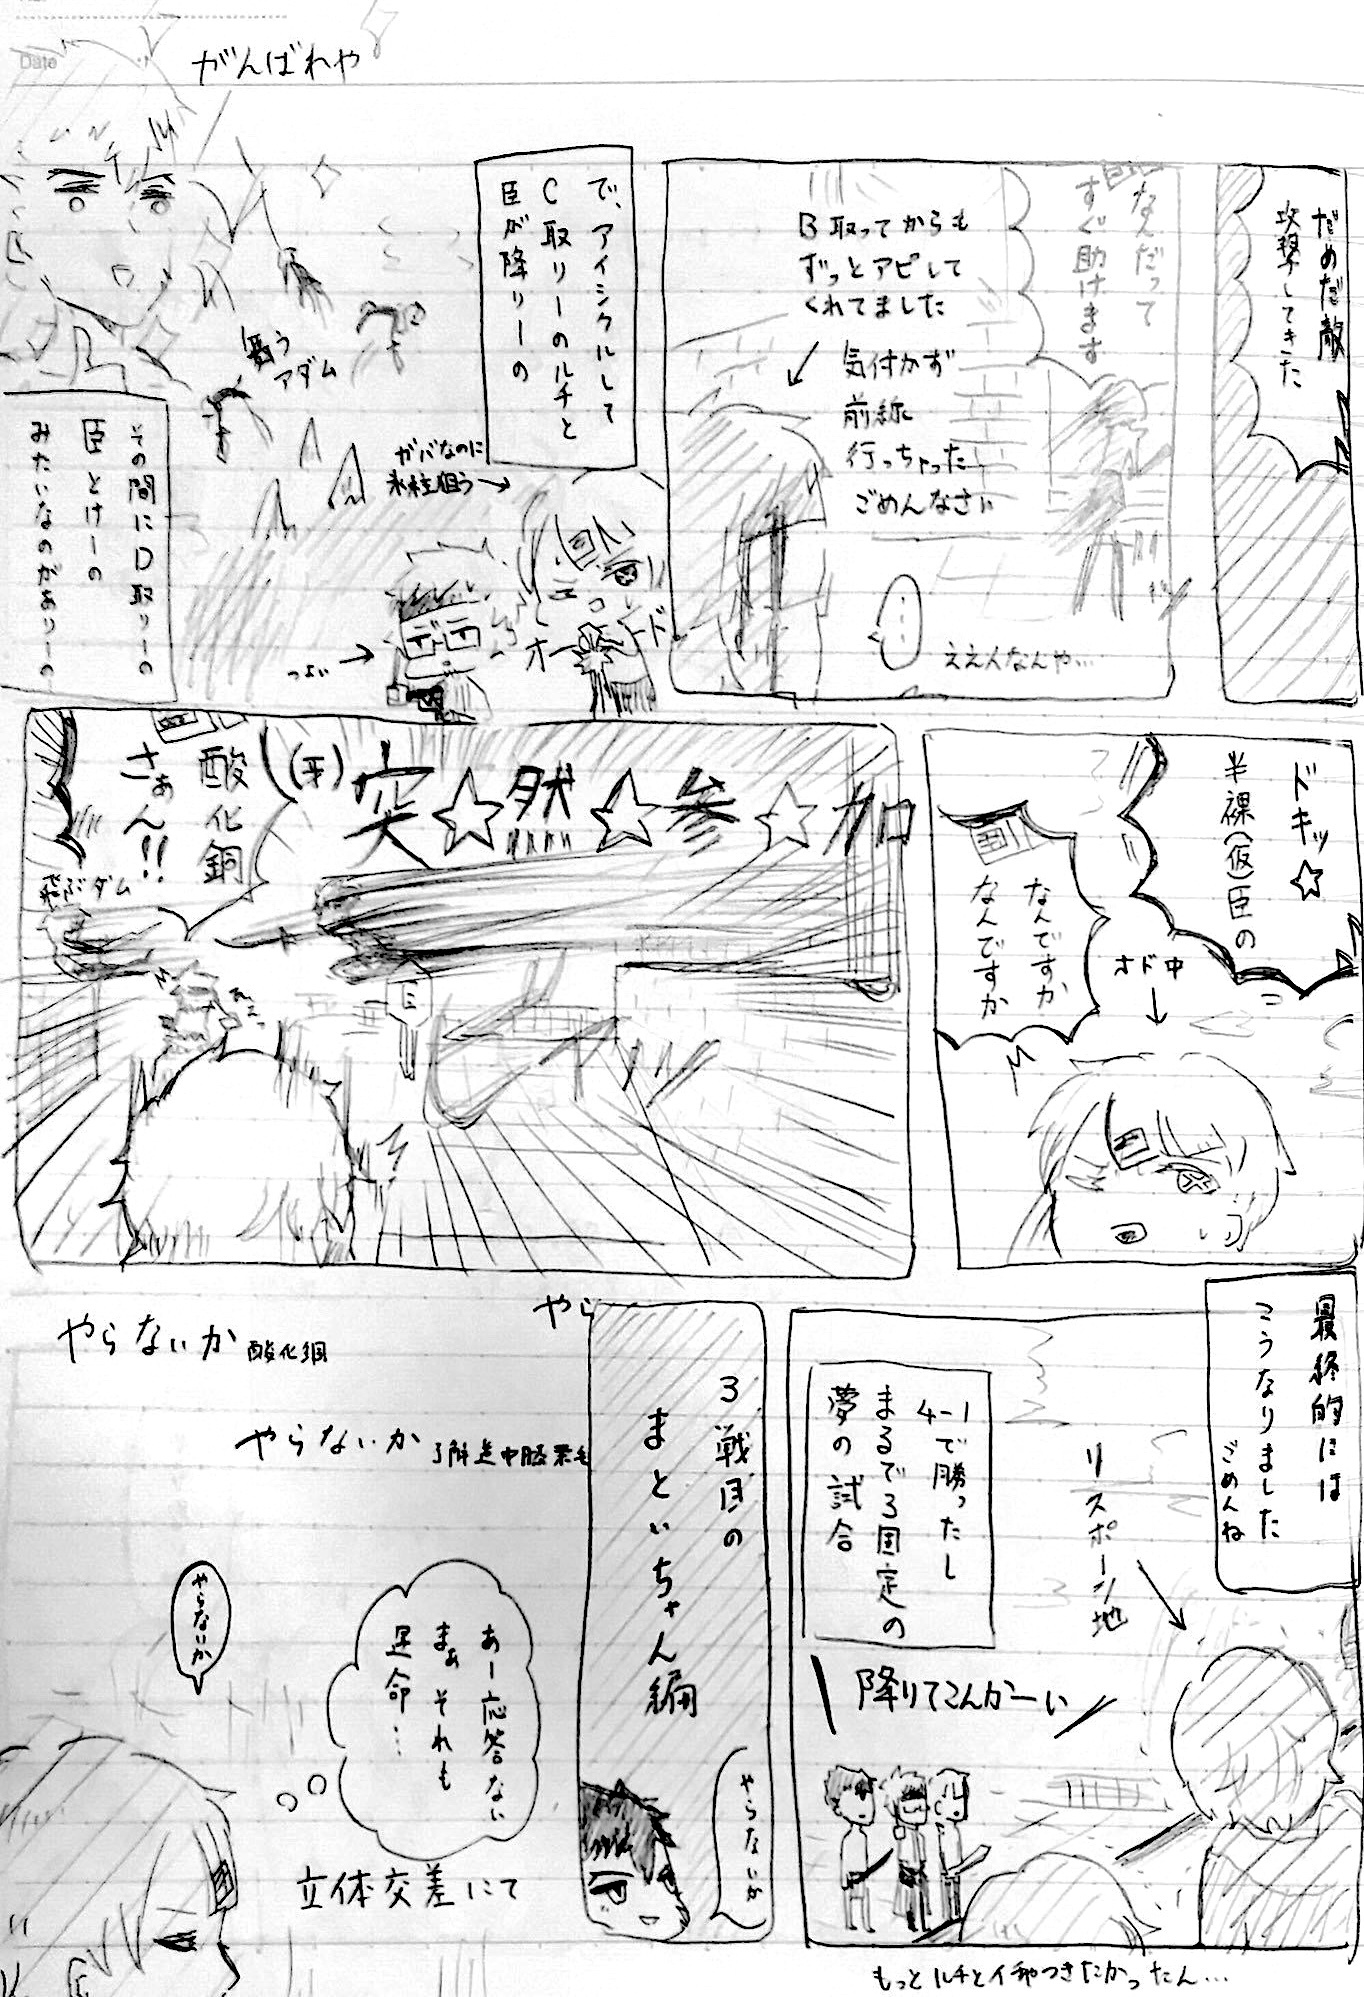 Date
がんばれや
だめだ敵
攻撃してきた
なんだって
すぐ助けます
B取ってからも
ずっとアピして
くれてました
気付かず
前線
行っちゃった
ごめんなさい
…
ええ人なんや…
で、アイシクルして
C取リーのルチと
臣が降リーの
舞う
アダム
ガバなのに
氷柱狙う→
オード
つよい→
その間にD取リーの
臣とけーの
みたいなのがありーの
ドキッ☆
半裸(仮)臣の
なんですか
なんですか
オド中
突☆然☆参☆加
酸化銅
さぁん!!
飛ぶダム
最終的には
こうなりました
ごめんね
リスポーン地
4-1で勝ったし
まるで3固定の
夢の試合
降りてこんかーい
もっとルチとイチャつきたかったん…
3戦目の
まといちゃん編
やらないか
やら
やらないか 酸化銅
やらないか
やらないか
あー応答ない
まぁそれも
運命…
立体交差にて